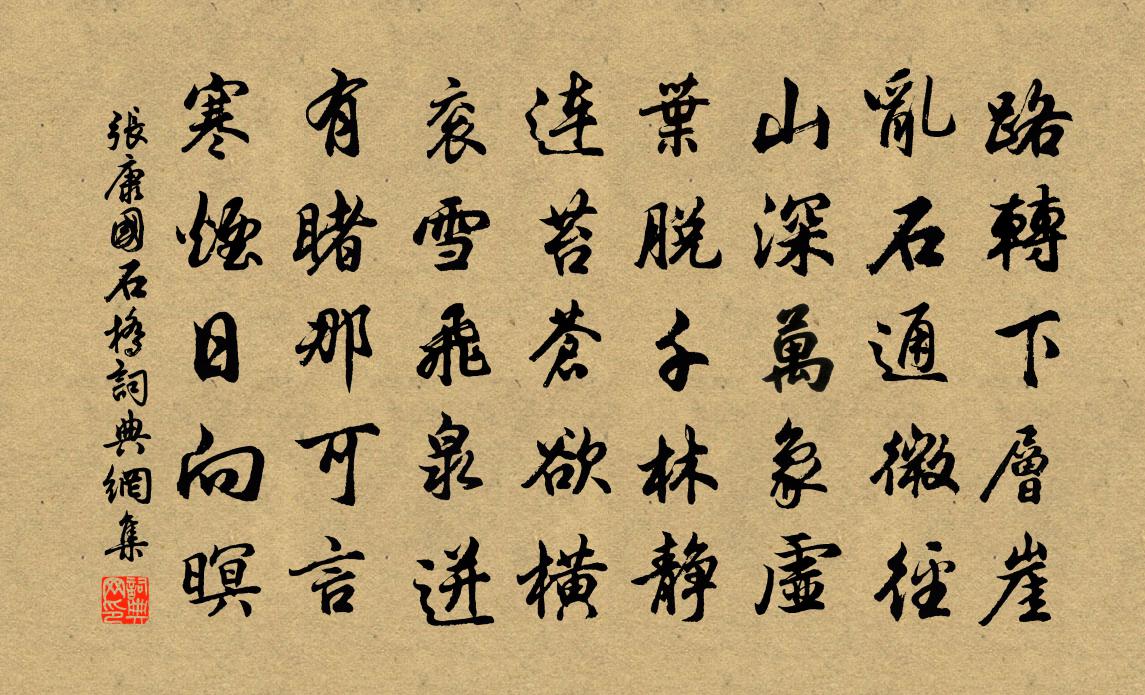 路轉下層崖
亂石通微徑
山深萬象虛
葉脫千林靜
連苔蒼欲橫
衮雪飛泉迸
有睹那可言
寒煙日向暝
張康國石橋詞典網集
詞典网印